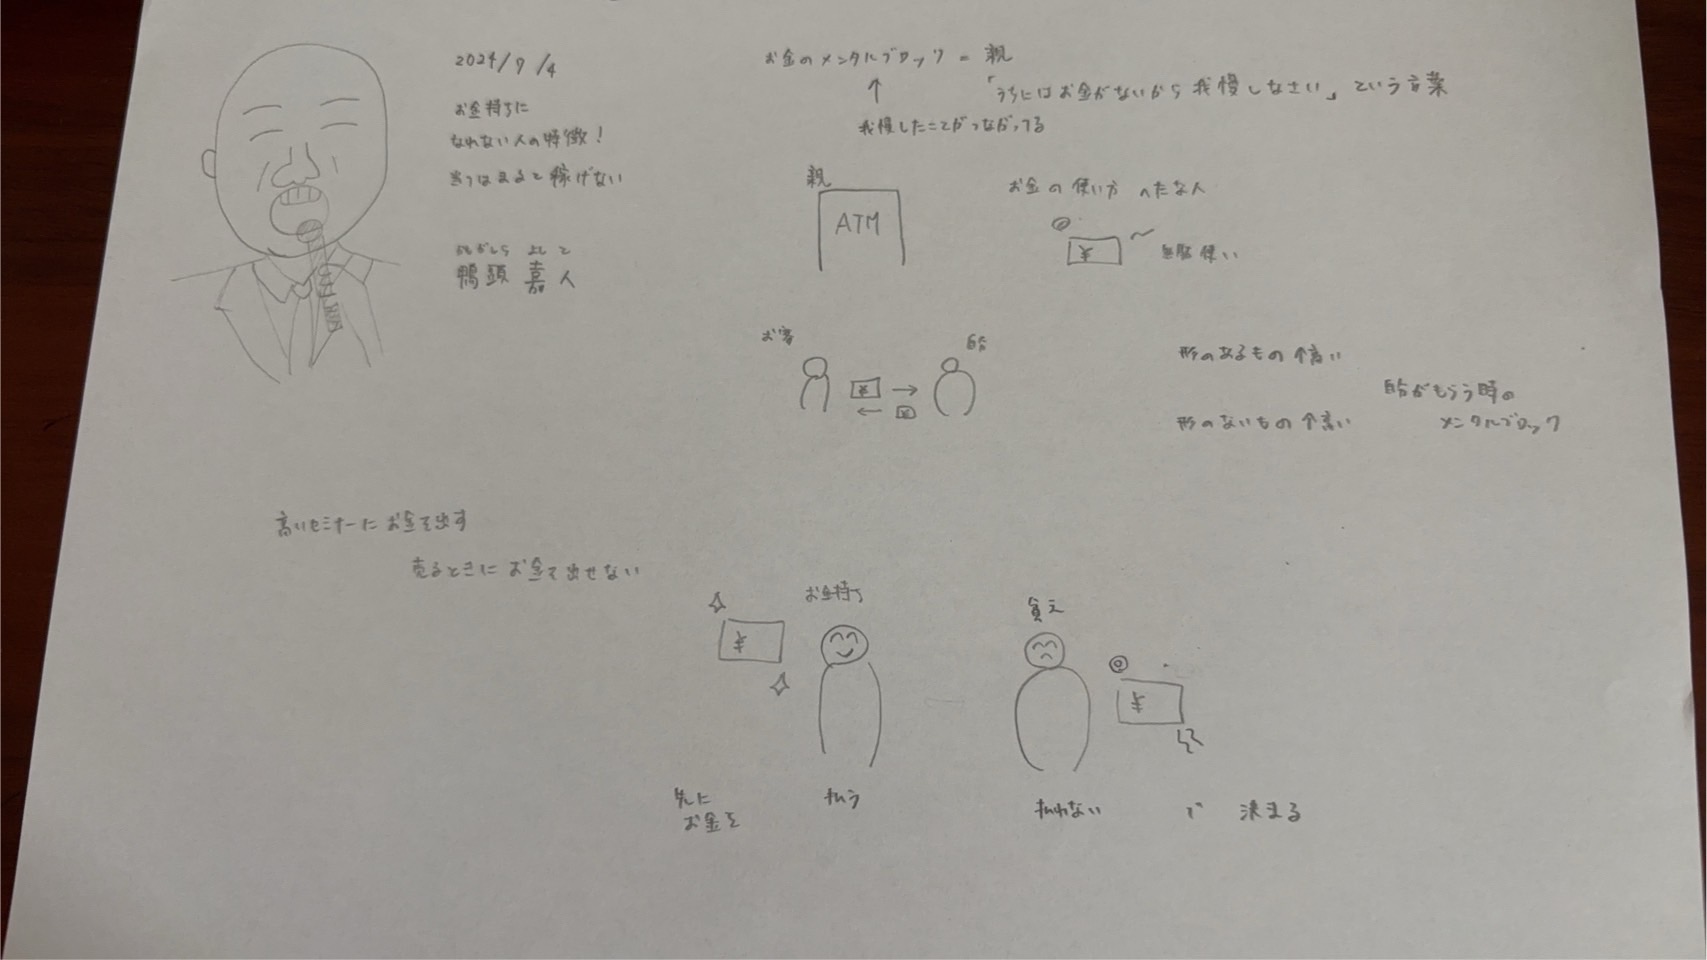 2024/9/4
お金持ちに
なれない人の特徴!
当てはまると稼げない
かもがしら よしと
鴨頭 嘉人
お金のメンタルブロック = 親
「うちにはお金がないから我慢しなさい」という言葉
↑
我慢したことがつながってる
親
ATM
お金の使い方 へたな人
¥
無駄使い
お客
自分
¥ →
← ¥
形のあるもの 高い
形のないもの 高い
自分がもらう時の
メンタルブロック
高いセミナーにお金を出す
売るときにお金を出せない
お金持ち
¥
貧乏
¥
先に
お金を
払う
払わない で 決まる